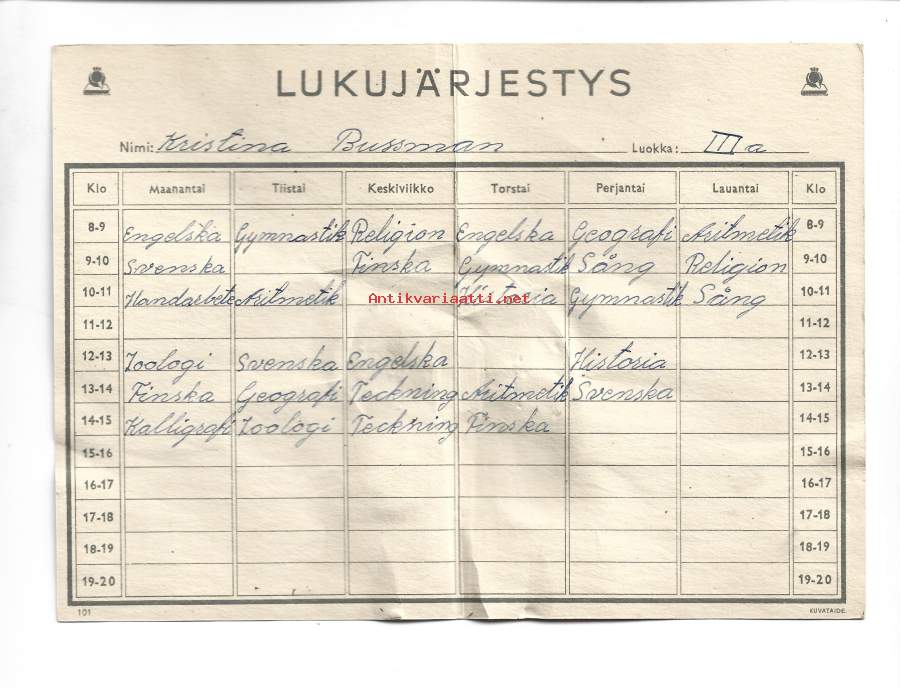 LUKUJÄRJESTYS
Nimi: Kristina Bussman Luokka: III a
Klo Maanantai Tiistai Keskiviikko Torstai Perjantai Lauantai Klo
8-9 Engelska Gymnastik Religion Engelska Geografi Aritmetik 8-9
9-10 Svenska Finska Gymnastik Sång Religion 9-10
10-11 Handarbete Aritmetik Historia Gymnastik Sång 10-11
Antikvariaatti.net
11-12 11-12
12-13 Zoologi Svenska Engelska Historia 12-13
13-14 Finska Geografi Teckning Aritmetik Svenska 13-14
14-15 Kalligrafi Zoologi Teckning Finska 14-15
15-16 15-16
16-17 16-17
17-18 17-18
18-19 18-19
19-20 19-20
101 KUVATAIDE